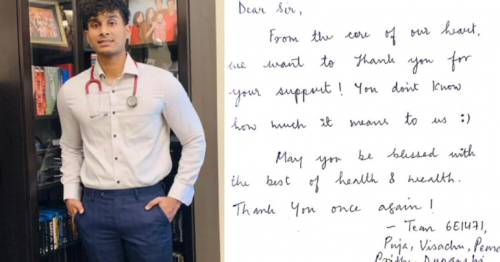 Dear Sir,
From the core of our heart,
we want to thank you for
your support! You don't know
how much it means to us :)
May you be blessed with
the best of health & wealth.
Thank You once again!
- Team 6E1471,
Puja, Visachu, Pema
Prithi,